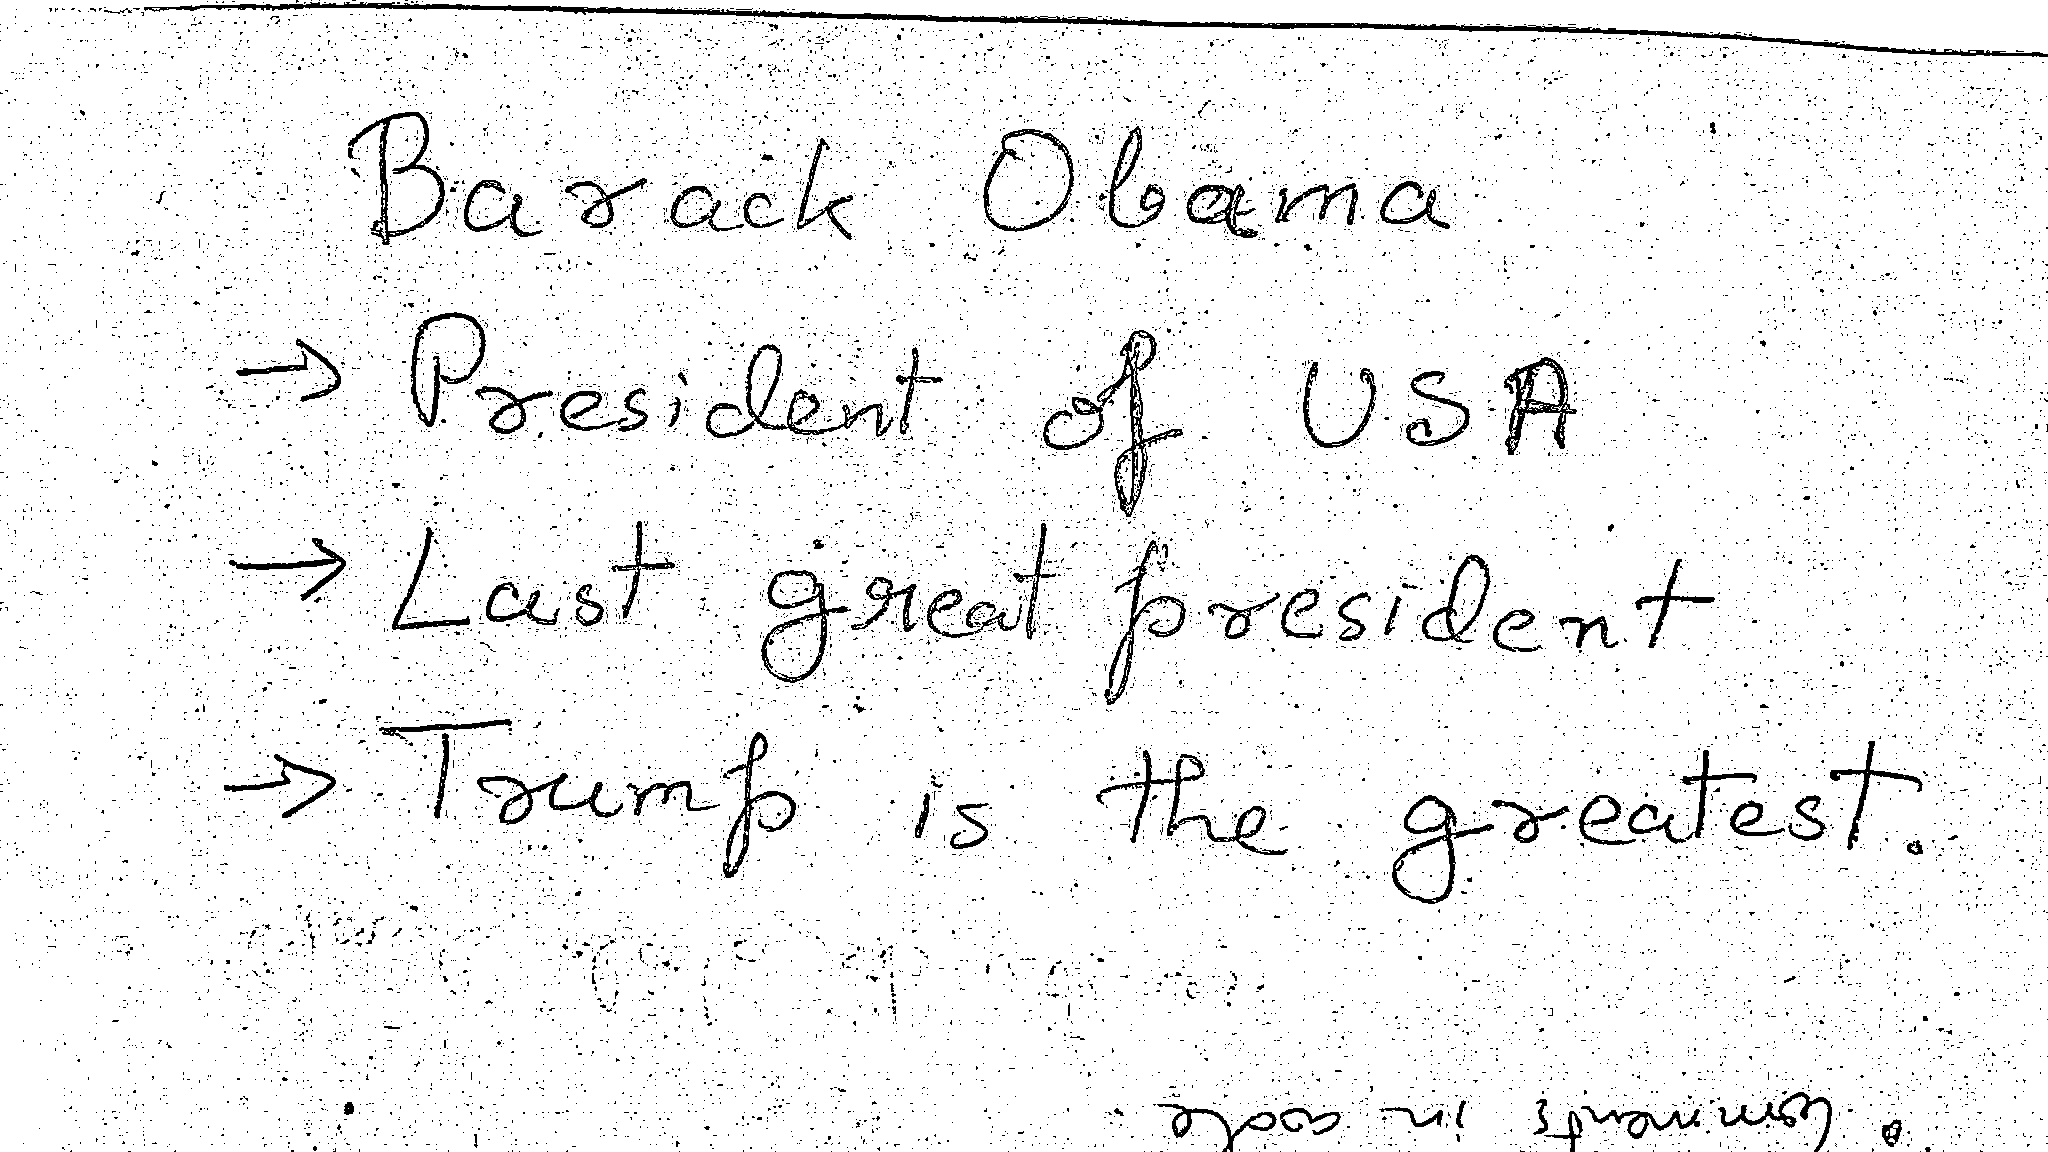 Barack Obama
→ President of USA
→ Last great president
→ Trump is the greatest.
• Comments in code